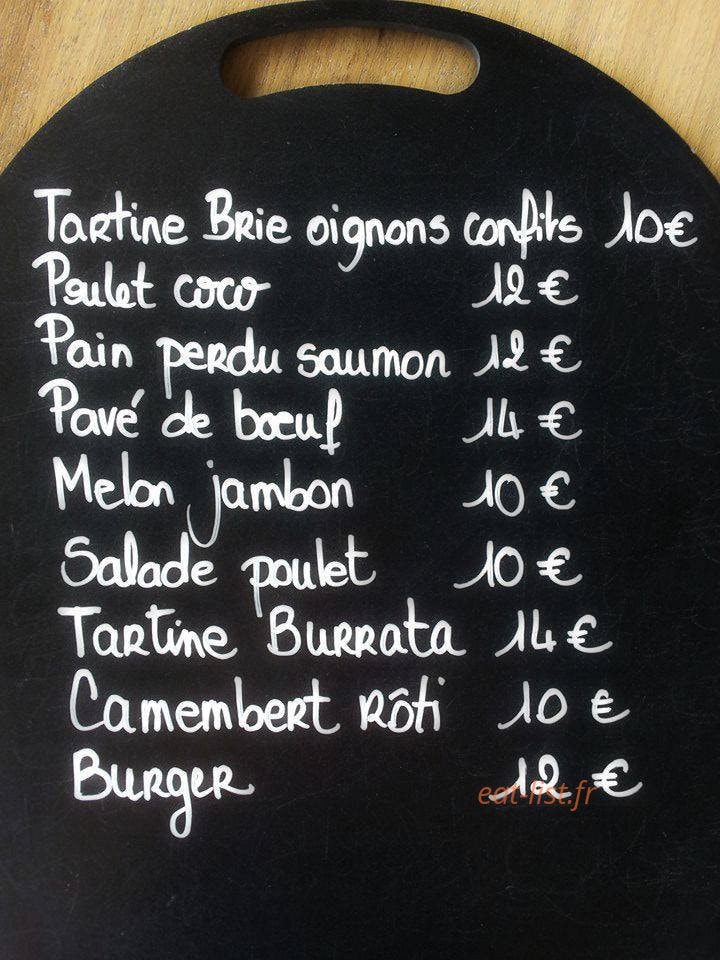 Tartine Brie oignons confits 10€
Poulet coco 12€
Pain perdu saumon 12€
Pavé de bœuf 14€
Melon jambon 10€
Salade poulet 10€
Tartine Burrata 14€
Camembert rôti 10€
Burger 12€
eat-list.fr